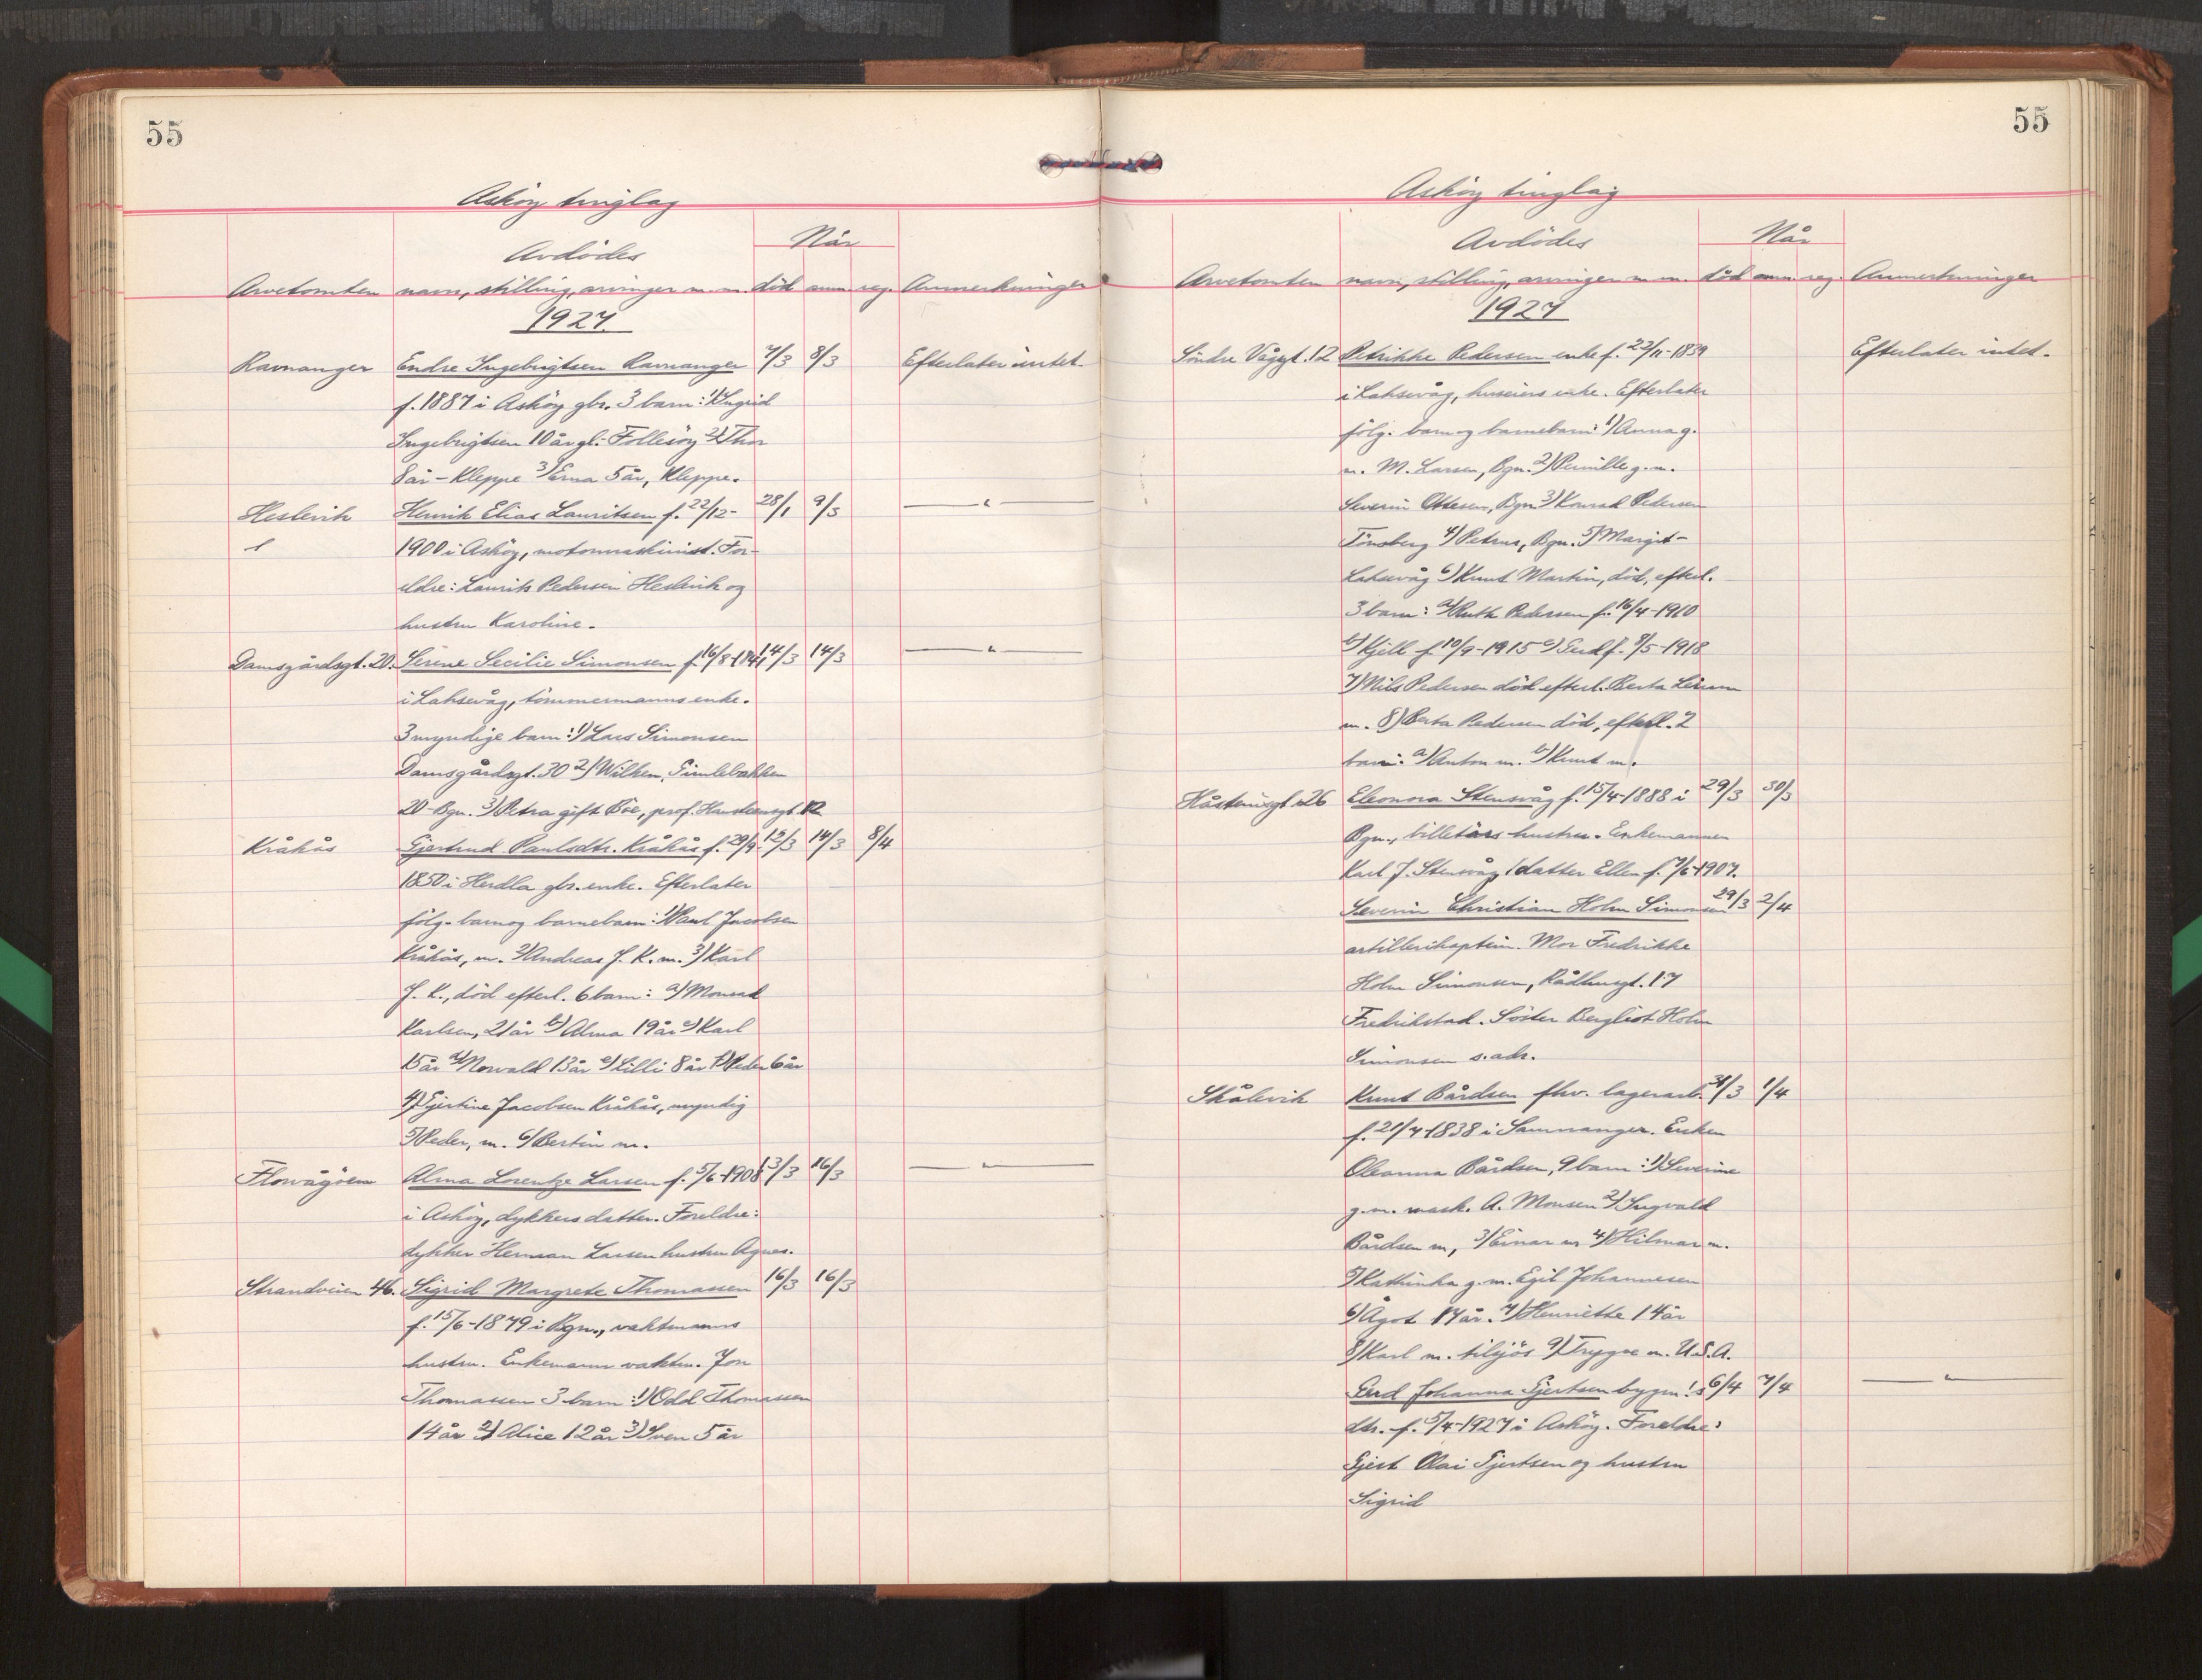 55
Askøy tinglag
Når
Avdødes
Arvetomten navn, stilling, arvinger m. m. död anm reg. Anmerkninger
1927
Ravnanger Endre Ingebrigtsen Ravnanger 7/3 8/3 Efterlater intet.
f. 1887 i Asköy gbr. 3 barn: 1) Ingrid
Ingebrigtsen 10 år gl. Follesöy 2) Thor
8 år - Kleppe 3) Erna 5 år, Kleppe.
Heslevik Henrik Elias Lauritsen f. 22/12- 28/1 9/3 — " —
1900 i Asköy, motormaskinist. For-
eldre: Laurits Pedersen Heslevik og
hustru Karoline.
Damsgårdsgt. 20. Serene Secilie Simonsen f. 16/8-1841 14/3 14/3 — " —
i Laksevåg, tömmermanns enke.
3 myndige barn: 1) Lars Simonsen
Damsgårdsgt. 30 2) Wilhem,
20 - Bgn. 3) Petra gift Böe, prof.
Kråkås Gjertrud Paulsdtr. Kråkås f. 29/9- 12/3 14/3 8/4
1850 i Herdla gbr. enke. Efterlater
fölg. barn og barnebarn: 1) Paul Jacobsen
Kråkås, m. 2) Andreas J. K. m. 3) Karl
J. K., död efterl. 6 barn: a) Monrad
Karlsen, 21 år b) Alma 19 år c) Karl
15 år d) Norvald 13 år e) Lilli 8 år f) Peder 6 år
4) Gjertine Jacobsen Kråkås, myndig
5) Peder, m. 6) Bertin m.
Florvågöen Alma Lorentze Larsen f. 5/6-1908 13/3 16/3 — " —
i Asköy, dykkers datter. Foreldre:
dykker Herman Larsen hustru Agnes.
Strandveien 46. Sigrid Margrete Thomassen 16/3 16/3
f. 15/6-1879 i Bgn., vaktmanns
hustru. Enkemann vaktm. Jon
Thomassen 3 barn: 1) Odd Thomassen
14 år 2) Alice 12 år 3) Sven 5 år
55
Asköy tinglag
Når
Avdödes
Arvetomten navn, stilling, arvinger m. m. död anm reg. Anmerkninger
1927
Söndre Vågsgt. 12 Petrikke Pedersen enke f. 22/11-1839 Efterlater intet.
i Laksevåg, huseiers enke. Efterlater
fölg. barn og barnebarn: 1) Anna g.
m. M. Larsen, Bgn. 2) Pernille g. m.
Severin Ottesen, Bgn 3) Konrad Pedersen
Tönsberg 4) Petrus, Bgn. 5) Margit -
Laksevåg 6) Knut Martin, död, efterl.
3 barn: a) Ruth Pedersen f. 16/4-1910
b) Kjell f. 10/9-1915 c) Gerd f. 9/5-1918
7) Nils Pedersen död efterl. Berta
m. 8) Berta Pedersen död, efterl. 2
barn: a) Anton m. b) Knut m.
26 Eleonora Stensvåg f. 15/4-1888 i 29/3 30/3
Bgn., billetörs hustru. Enkemannen
Karl J. Stensvåg 1 datter Ellen f. 7/6-1907.
Severin Christian Holm Simonsen 29/3 2/4
artillerikaptein. Mor Fredrikke
Holm Simonsen, Rådhusgt. 17
Fredrikstad. Söster Bergliot Holm
Simonsen s. adr.
Skålevik Knut Bårdsen fhv. lagerarb. 31/3 1/4
f. 21/4-1838 i Samnanger. Enken
Oleanna Bårdsen, 9 barn: 1) Severine
g. m. mask. A. Monsen 2) Ingvald
Bårdsen m, 3) Einar m 4) Hilmar m.
5) Kathinka g. m. Egil Johannesen
6) Ågot 17 år. 7) Henriette 14 år
8) Karl m. tilsjös 9) Trygve m. U.S.A.
Gerd Johanna Gjertsen bygm's 6/4 7/4 — " —
dtr. f. 5/4-1927 i Asköy. Foreldre:
Gjert Olai Gjertsen og hustru
Sigrid